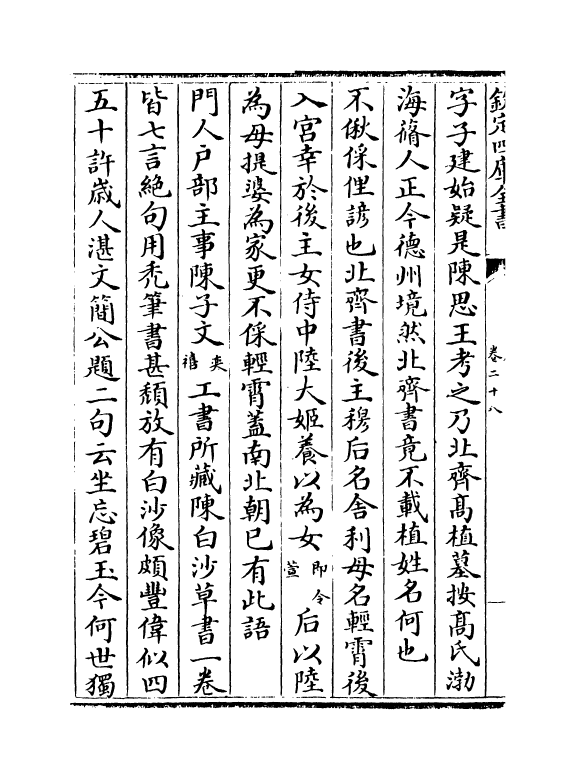 欽定四庫全書
卷二十八
字子建始疑是陳思王考之乃北齊髙植墓按髙氏渤
海蓨人正今德州境然北齊書竟不載植姓名何也
不偢倸俚諺也北齊書後主穆后名舍利母名輕霄後
入宮幸於後主女侍中陸大姬養以為女即令萱后以陸
為母提婆為家更不倸輕霄蓋南北朝已有此語
門人戸部主事陳子文奕禧工書所藏陳白沙草書一卷
皆七言絶句用秃筆書甚頽放有白沙像頗豐偉似四
五十許嵗人湛文簡公題二句云坐忘碧玉今何世獨